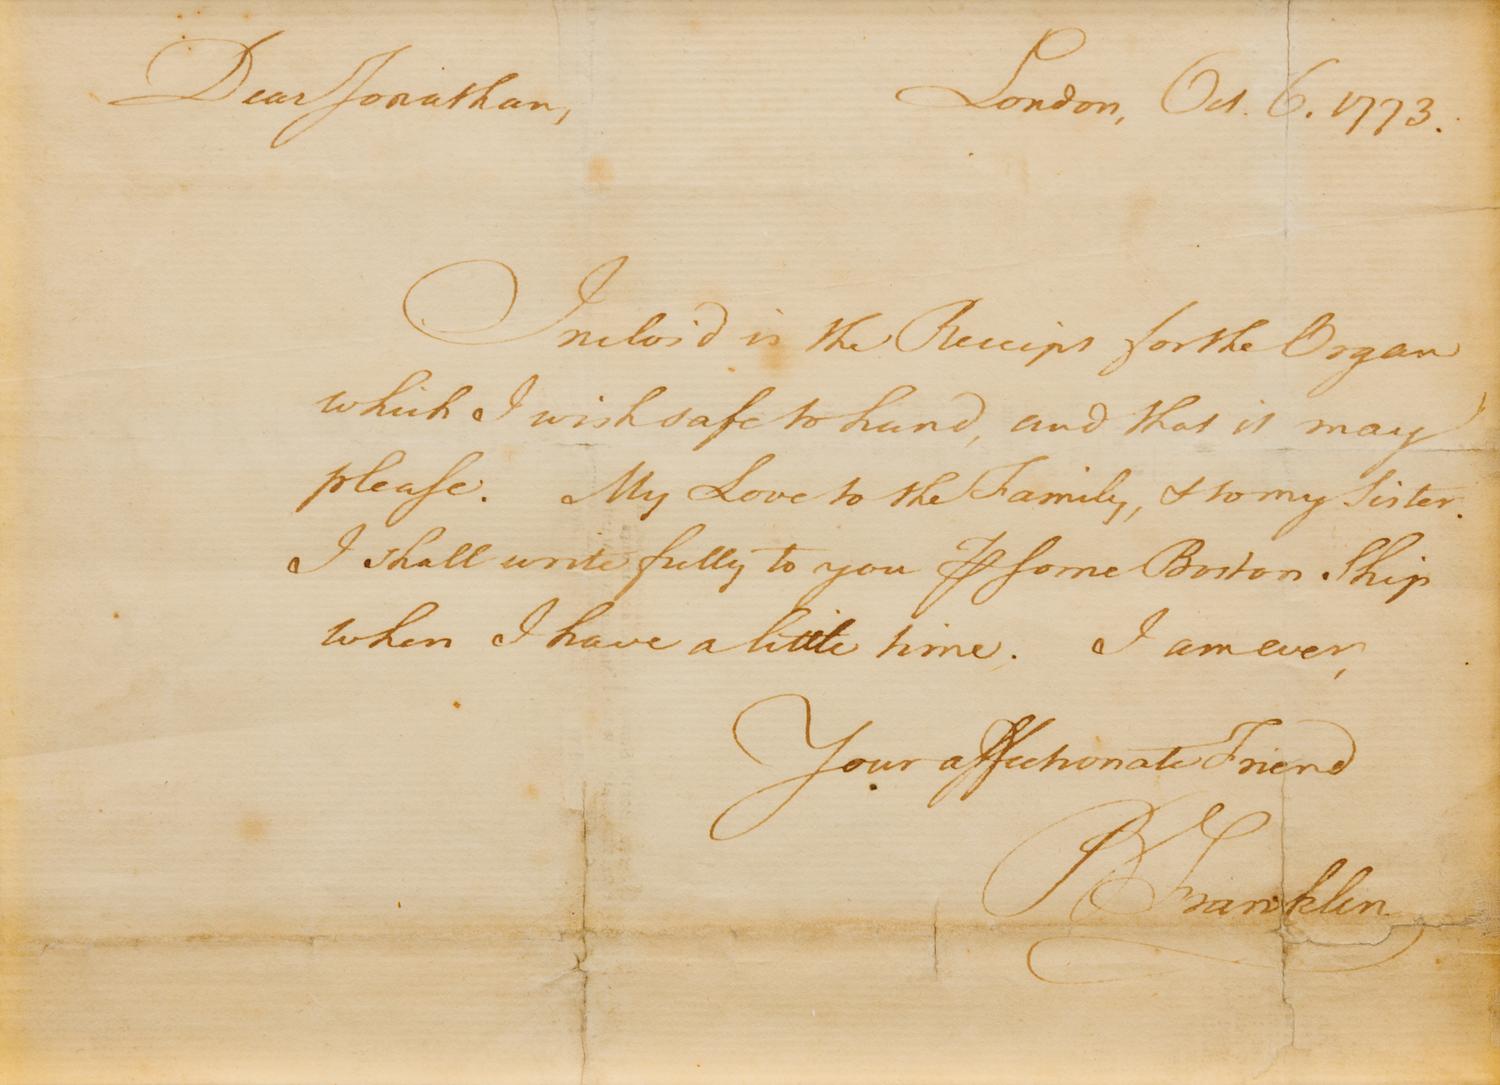 Dear Jonathan, London, Oct. 6. 1773.
Inclos'd is the Receipt for the Organ
which I wish safe to hand, and that it may
please. My Love to the Family, & to my Sister.
I shall write fully to you ⅌ some Boston Ship
when I have a little time. I am ever,
Your affectionate Friend
B Franklin